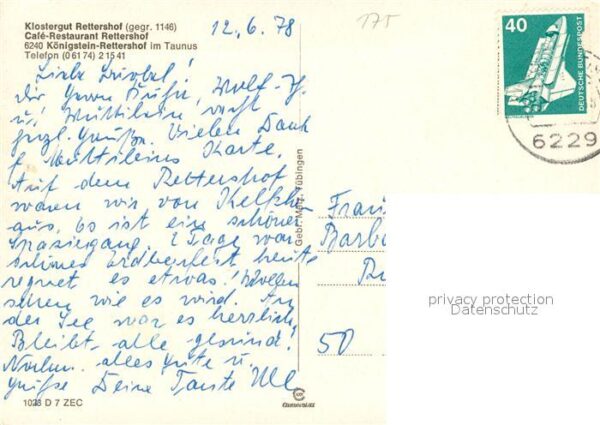 Klostergut Rettershof (gegr. 1146)
Café-Restaurant Rettershof
6240 Königstein-Rettershof im Taunus
Telefon (0 61 74) 2 15 41
12.6.78
175
40
DEUTSCHE BUNDESPOST
6229
Liebe
Dir, Wolf-H.
u.
herzl. Grüße. Vielen Dank
f. Muttileins Karte.
Auf dem Rettershof
waren wir von Kelkheim
aus. Es ist ein schöner
Spaziergang. 2 Tage war
schönes heute
regnet es etwas! Wollen
sehen wie es wird. An
der See war es herrlich,
Bleibt alle gesund!
Nochm. alles Gute u.
Grüße Deine Tante
1023 D 7 ZEC
Gebr. Metz, Tübingen
Frau
Barba
50
privacy protection
Datenschutz